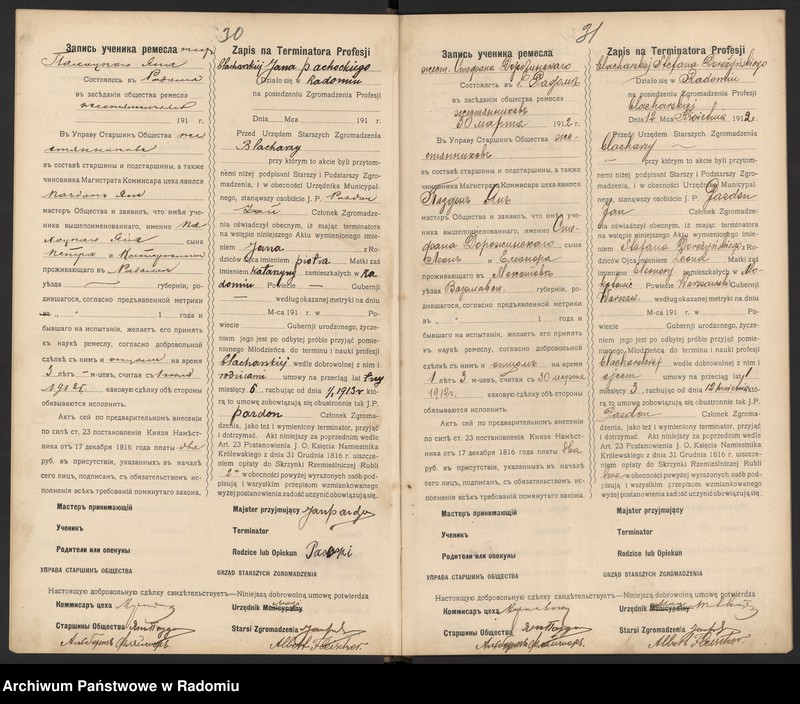 30
Запись ученика ремесла
Состоялось въ Радомѣ
въ засѣданіи общества ремесла
191 г.
Въ Управу Старшинъ Общества же
стянниковъ
въ составѣ старшины и подстаршины, а также
чиновника Магистрата Комисара цеха явился
Паздонъ Янъ
мастеръ Общества и заявилъ, что имѣя уче-
ника вышепоименованнаго, именно Па
Яна сына
Петра и Катарины
проживающаго въ Радомѣ
уѣзда губерніи, ро-
дившагося, согласно предъявленной метрики
въ „ " 1 года и
бывшаго на испытаніи, желаетъ его принять
къ наукѣ ремеслу, согласно добровольной
сдѣлкѣ съ нимъ и отцомъ на время
3 лѣтъ — м-цевъ, считая съ
1912г. каковую сдѣлку обѣ стороны
обязываются исполнить.
Актъ сей по предварительномъ внесеніи
по силѣ ст. 23 постановленія Князя Намѣст-
ника отъ 17 декабря 1816 года платы две
руб. въ присутствіи, указанныхъ въ началѣ
сего лицъ, подписанъ, съ обязательствомъ ис-
полненія всѣхъ требованій помянутаго закона.
Zapis na Terminatora Profesji
Blacharskiej Jana Pacholkiego
Działo się w Radomiu
na posiedzeniu Zgromadzenia Profesji
Dnia Mca 191 r.
Przed Urzędem Starszych Zgromadzenia
Blacharzy
przy którym to akcie byli przytom-
nemi niżej podpisani Starszy i Podstarszy Zgro-
madzenia, i w obecności Urzędnika Municypal-
nego, stanąwszy osobiście J. P. Pasdon
Jan Członek Zgromadze-
nia oświadczył obecnym, iż mając terminatora
na wstępie niniejszego Aktu wymienionego imie-
niem Jana z Ro-
dziców Ojca imieniem piotra Matki zaś
imieniem Katarzyny zamieszkałych w Ra
domiu Powiecie — Gubernji
— według okazanej metryki na dniu
M-ca 191 r. w Po-
wiecie Gubernji urodzonego, życze-
niem jego jest po odbytej próbie przyjąć pomie-
nionego Młodzieńca do terminu i nauki profesji
Blacharskiej wedle dobrowolnej z nim i
rodziami umowy na przeciąg lat trzy
miesięcy 6, rachując od dnia 1/1 1913 r któ-
rą to umowę zobowiązują się obustronnie tak J.P.
Pardon Członek Zgroma-
dzenia, jako też i wymieniony terminator, przyjąć
i dotrzymać. Akt niniejszy za poprzednim wedle
Art. 23 Postanowienia J. O. Księcia Namiestnika
Królewskiego z dnia 31 Grudnia 1816 r. uiszcze-
niem opłaty do Skrzynki Rzemieślniczej Rubli
2 w obecności powyżej wyrażonych osób pod-
pisują i wszystkim przepisom wzmiankowanego
wyżej postanowienia zadość uczynić obowiązują się.
Мастеръ принимающій Majster przyjmujący Jan Pardo
Ученикъ Terminator
Родители или опекуны Rodzice lub Opiekun
УПРАВА СТАРШИНЪ ОБЩЕСТВА URZĄD STARSZYCH ZGROMADZENIA
Настоящую добровольную сдѣлку свидѣтельствуетъ—Niniejszą dobrowolną umowę potwierdza
Коммисаръ цеха Urzędnik Municypalny
Старшины Общества Янъ Паздо Starsi Zgromadzenia
Альбертъ Флейшеръ Albert Fleischer.
31
Запись ученика ремесла
жест. Стефана Дорожинскаго
Состоялось въ г. Радомѣ
въ засѣданіи общества ремесла
жестянниковъ
30 марта 1912 г.
Въ Управу Старшинъ Общества же-
стянниковъ
въ составѣ старшины и подстаршины, а также
чиновника Магистрата Комисара цеха явился
Паздонъ Янъ
мастеръ Общества и заявилъ, что имѣя уче-
ника вышепоименованнаго, именно Сте-
фана Дорожинскаго сына
Леона и Елеонора
проживающаго въ Мокотовѣ
уѣзда Варшавск. губерніи, ро-
дившагося, согласно предъявленной метрики
въ „ " 1 года и
бывшаго на испытаніи, желаетъ его принять
къ наукѣ ремеслу, согласно добровольной
сдѣлкѣ съ нимъ и отцомъ на время
1 лѣтъ 3 м-цевъ, считая съ 30 марта
1912г. каковую сдѣлку обѣ стороны
обязываются исполнить.
Актъ сей по предварительномъ внесеніи
по силѣ ст. 23 постановленія Князя Намѣст-
ника отъ 17 декабря 1816 года платы два
руб. въ присутствіи, указанныхъ въ началѣ
сего лицъ, подписанъ, съ обязательствомъ ис-
полненія всѣхъ требованій помянутаго закона.
Zapis na Terminatora Profesji
Blacharskiej Stefana Dorożyńskiego
Działo się w Radomiu
na posiedzeniu Zgromadzenia Profesji
Blacharskiej
Dnia 12 Mca Kwietnia 1912 r.
Przed Urzędem Starszych Zgromadzenia
Blacharzy
przy którym to akcie byli przytom-
nemi niżej podpisani Starszy i Podstarszy Zgro-
madzenia, i w obecności Urzędnika Municypal-
nego, stanąwszy osobiście J. P. Pasdon
Jan Członek Zgromadze-
nia oświadczył obecnym, iż mając terminatora
na wstępie niniejszego Aktu wymienionego imie-
niem Stefana Dorożyńskiego z Ro-
dziców Ojca imieniem Leona Matki zaś
imieniem Eleonory zamieszkałych w Mo-
kotowie Powiecie Warszawski Gubernji
Warszaw. według okazanej metryki na dniu
M-ca 191 r. w Po-
wiecie Gubernji urodzonego, życze-
niem jego jest po odbytej próbie przyjąć pomie-
nionego Młodzieńca do terminu i nauki profesji
Blacharskiej wedle dobrowolnej z nim i
ojcem umowy na przeciąg lat 1
miesięcy 3, rachując od dnia 12 kwietnia któ-
rą to umowę zobowiązują się obustronnie tak J.P.
Pasdon Członek Zgroma-
dzenia, jako też i wymieniony terminator, przyjąć
i dotrzymać. Akt niniejszy za poprzednim wedle
Art. 23 Postanowienia J. O. Księcia Namiestnika
Królewskiego z dnia 31 Grudnia 1816 r. uiszcze-
niem opłaty do Skrzynki Rzemieślniczej Rubli
dwa w obecności powyżej wyrażonych osób pod-
pisują i wszystkim przepisom wzmiankowanego
wyżej postanowienia zadość uczynić obowiązują się.
Мастеръ принимающій Majster przyjmujący
Ученикъ Terminator
Родители или опекуны Rodzice lub Opiekun
УПРАВА СТАРШИНЪ ОБЩЕСТВА URZĄD STARSZYCH ZGROMADZENIA
Настоящую добровольную сдѣлку свидѣтельствуетъ—Niniejszą dobrowolną umowę potwierdza
Коммисаръ цеха Urzędnik Municypalny
Старшины Общества Янъ Паздо Starsi Zgromadzenia
Альбертъ Флейшеръ Albert Fleischer.
Archiwum Państwowe w Radomiu